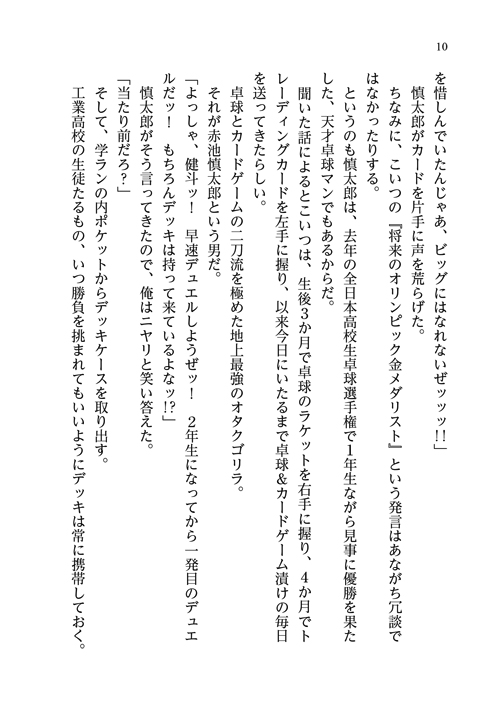 10
を惜しんでいたんじゃあ、ビッグにはなれないぜッッッ!!」
慎太郎がカードを片手に声を荒らげた。
ちなみに、こいつの『将来のオリンピック金メダリスト』という発言はあながち冗談で
はなかったりする。
というのも慎太郎は、去年の全日本高校生卓球選手権で１年生ながら見事に優勝を果た
した、天才卓球マンでもあるからだ。
聞いた話によるとこいつは、生後３か月で卓球のラケットを右手に握り、４か月でト
レーディングカードを左手に握り、以来今日にいたるまで卓球＆カードゲーム漬けの毎日
を送ってきたらしい。
卓球とカードゲームの二刀流を極めた地上最強のオタクゴリラ。
それが赤池慎太郎という男だ。
「よっしゃ、健斗ッ！　早速デュエルしようぜッ！　２年生になってから一発目のデュエ
ルだッ！　もちろんデッキは持って来ているよなッ!?」
慎太郎がそう言ってきたので、俺はニヤリと笑い答えた。
「当たり前だろ？」
そして、学ランの内ポケットからデッキケースを取り出す。
工業高校の生徒たるもの、いつ勝負を挑まれてもいいようにデッキは常に携帯しておく。